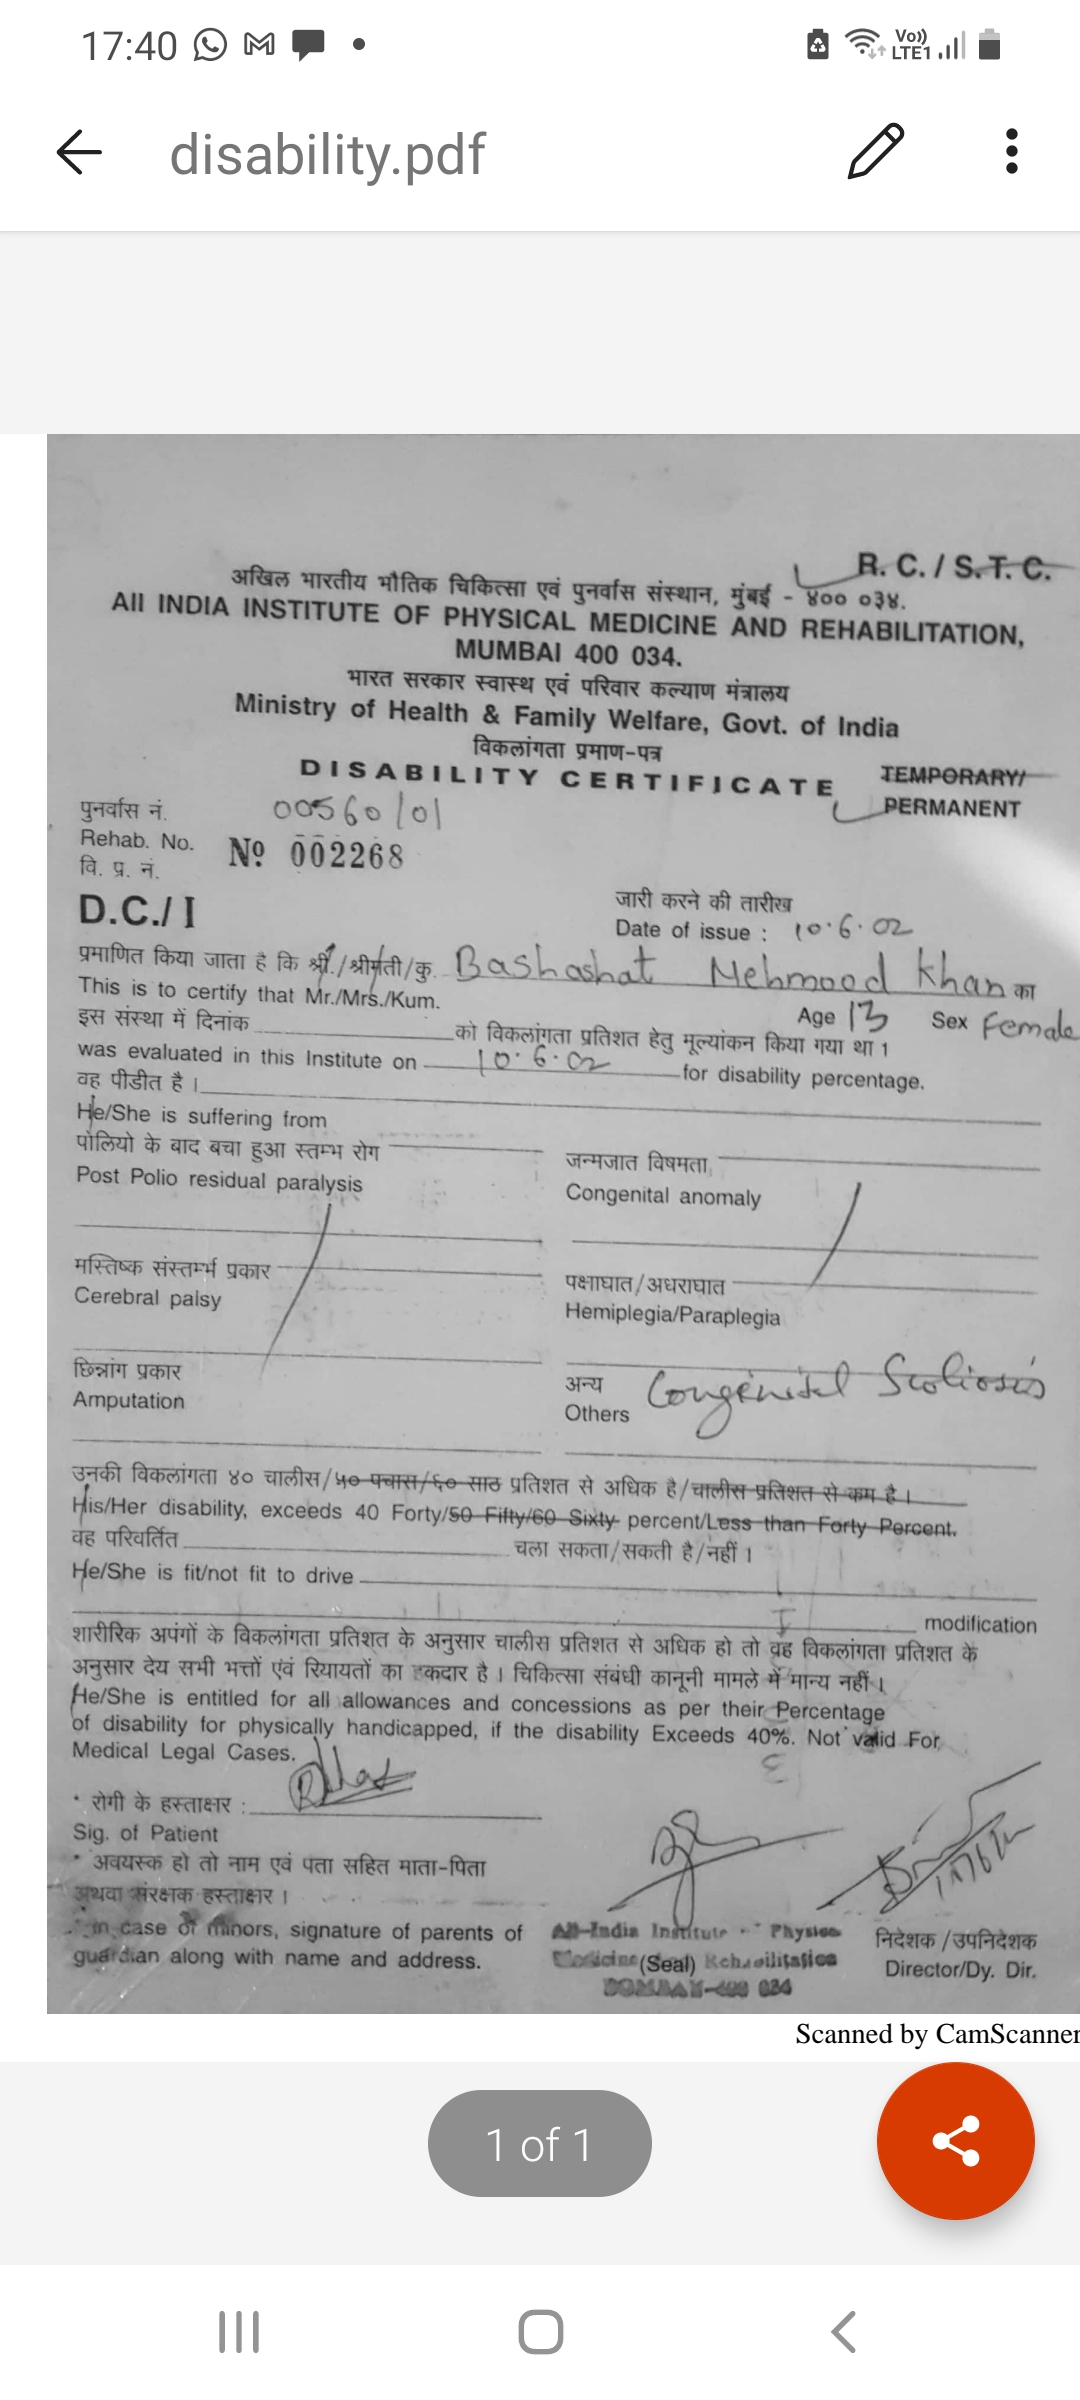 17:40
Vo))
LTE1
disability.pdf
R. C. / S. T. C.
अखिल भारतीय भौतिक चिकित्सा एवं पुनर्वास संस्थान, मुंबई - ४०० ०३४.
All INDIA INSTITUTE OF PHYSICAL MEDICINE AND REHABILITATION,
MUMBAI 400 034.
भारत सरकार स्वास्थ एवं परिवार कल्याण मंत्रालय
Ministry of Health & Family Welfare, Govt. of India
विकलांगता प्रमाण-पत्र
DISABILITY CERTIFICATE
TEMPORARY/
PERMANENT
पुनर्वास नं. 00560/01
Rehab. No.
वि. प्र. नं. Nº 002268
D.C./ I
जारी करने की तारीख
Date of issue : 10.6.02
प्रमाणित किया जाता है कि श्री./श्रीमती/कु. Bashashat Mehmood Khan का
This is to certify that Mr./Mrs./Kum.
Age 13 Sex Female
इस संस्था में दिनांक को विकलांगता प्रतिशत हेतु मूल्यांकन किया गया था 1
was evaluated in this Institute on 10.6.02 for disability percentage.
वह पीडीत है ।
He/She is suffering from
पोलियो के बाद बचा हुआ स्तम्भ रोग
Post Polio residual paralysis
जन्मजात विषमता
Congenital anomaly
मस्तिष्क संस्तर्म्भ प्रकार
Cerebral palsy
पक्षाघात/अधराघात
Hemiplegia/Paraplegia
छिन्नांग प्रकार
Amputation
अन्य
Others Congenital Scoliosis
उनकी विकलांगता ४० चालीस/५० पचास/६० साठ प्रतिशत से अधिक है/चालीस प्रतिशत से कम है ।
His/Her disability, exceeds 40 Forty/50 Fifty/60 Sixty percent/Less than Forty Percent.
वह परिवर्तित चला सकता/सकती है/नहीं ।
He/She is fit/not fit to drive
modification
शारीरिक अपंगों के विकलांगता प्रतिशत के अनुसार चालीस प्रतिशत से अधिक हो तो वह विकलांगता प्रतिशत के
अनुसार देय सभी भत्तों एंवं रियायतों का हकदार है । चिकित्सा संबंधी कानूनी मामले में मान्य नहीं ।
He/She is entitled for all allowances and concessions as per their Percentage
of disability for physically handicapped, if the disability Exceeds 40%. Not valid For
Medical Legal Cases.
* रोगी के हस्ताक्षर :
Sig. of Patient
* अवयस्क हो तो नाम एवं पता सहित माता-पिता
अथवा संरक्षक हस्ताक्षर ।
in case of minors, signature of parents of
guardian along with name and address.
All-India Institute Physical
Medicine (Seal) Rehabilitation
BOMBAY-400 034
निदेशक /उपनिदेशक
Director/Dy. Dir.
Scanned by CamScanner
1 of 1